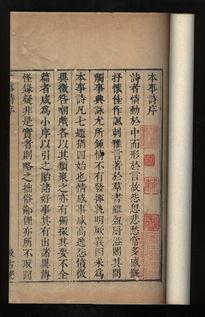 本事詩序
詩者情動於中而形於言故怨思悲愁常多感慨
抒懷佳作諷刺雅言著於羣書雖盈厨溢閣其間
觸事興詠尤所鍾情不有發揮孰明厥義因采為
本事詩凡七題猶四始也情感事感高逸怨憤徵
異徵咎嘲戲各以其類聚之亦有獨掇其要不全
篇者咸為小序以引之貽諸好事其有出諸異傳
怪錄疑非是實者則略之拙俗鄙俚亦所不取聞